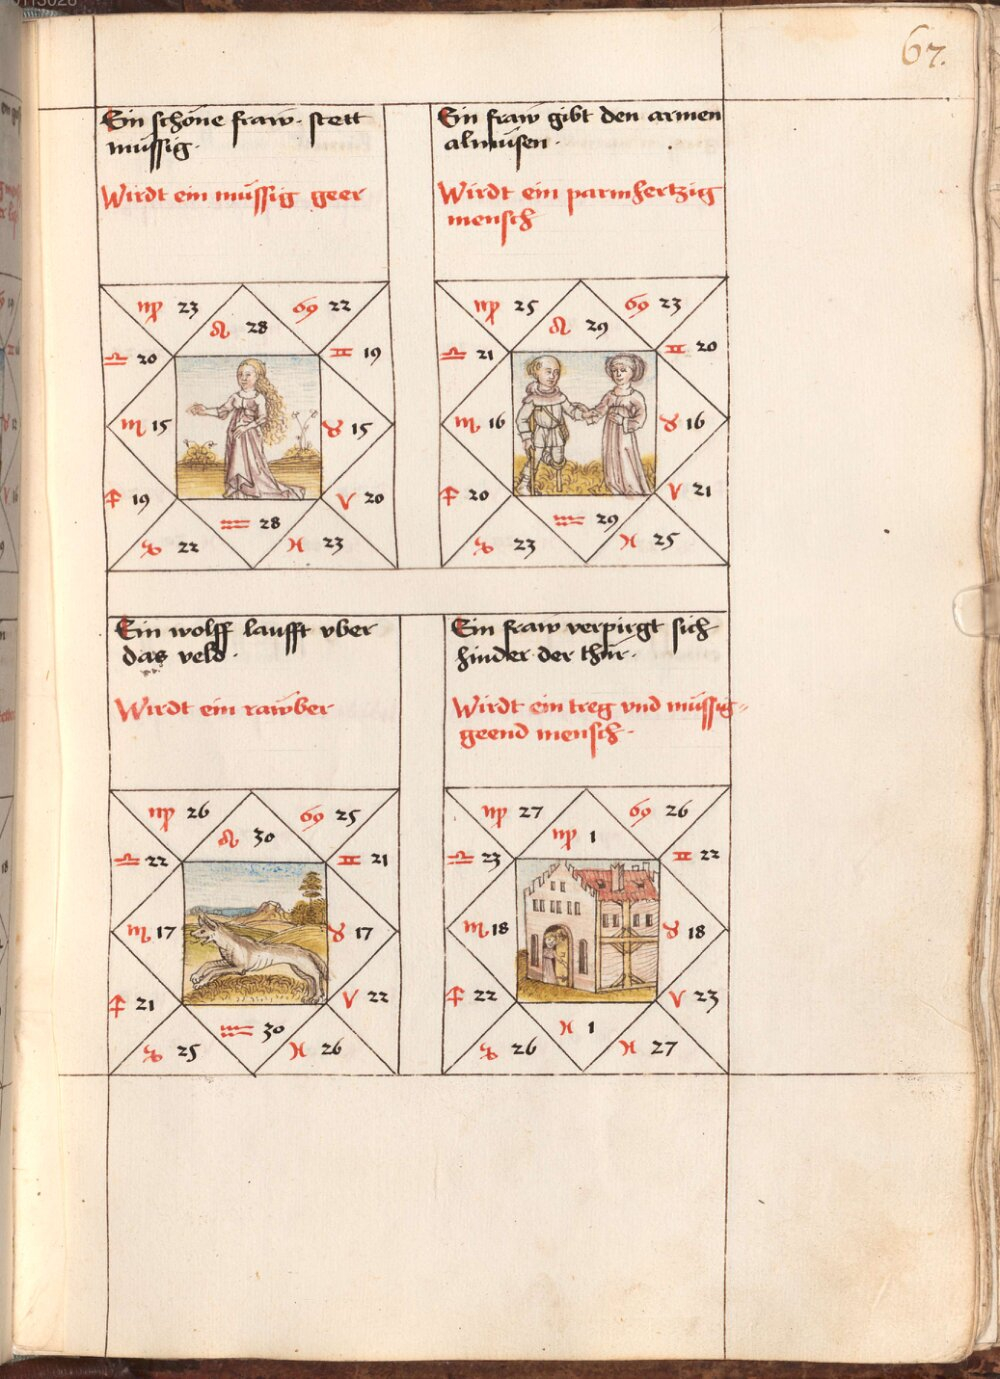 67.
Ein schöne fraw. stett
müssig.
Wirdt ein müssig geer
♍ 23
♋ 22
♌ 28
♎ 20
♊ 19
♏ 15
♉ 15
♐ 19
♈ 20
♒ 28
♑ 22
♓ 23
Ein fraw gibt den armen
almüsen.
Wirdt ein parmhertzig
mensch
♍ 25
♋ 23
♌ 29
♎ 21
♊ 20
♏ 16
♉ 16
♐ 20
♈ 21
♒ 29
♑ 23
♓ 25
Ein wolff laufft vber
das veld.
Wirdt ein rawber
♍ 26
♋ 25
♌ 30
♎ 22
♊ 21
♏ 17
♉ 17
♐ 21
♈ 22
♒ 30
♑ 25
♓ 26
Ein fraw verpirgt sich
hinder der thür.
Wirdt ein treg vnd müssig=
geend mensch.
♍ 27
♋ 26
♍ 1
♎ 23
♊ 22
♏ 18
♉ 18
♐ 22
♈ 23
♓ 1
♑ 26
♓ 27